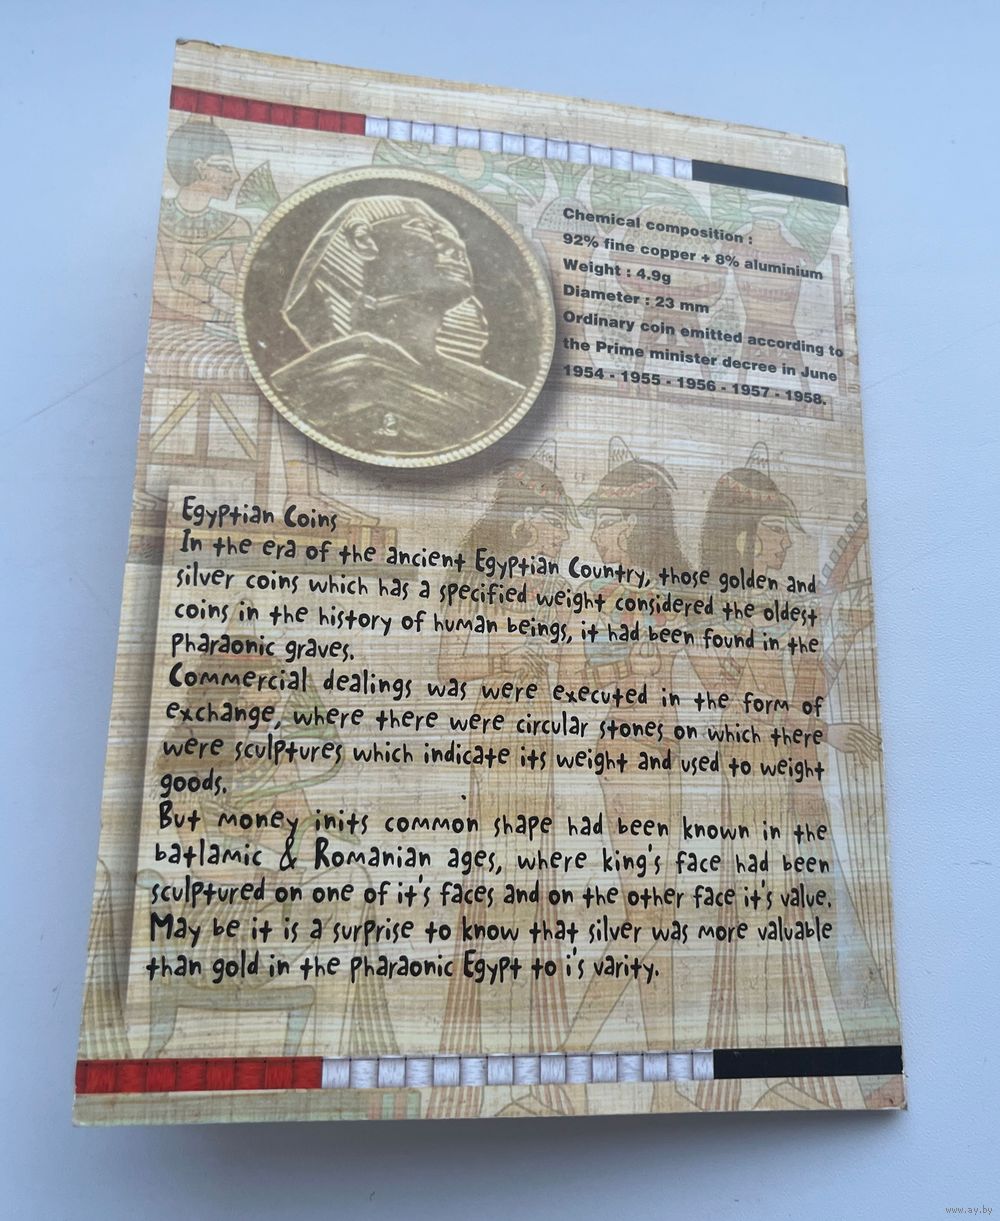 Chemical composition :
92% fine copper + 8% aluminium
Weight : 4.9g
Diameter : 23 mm
Ordinary coin emitted according to
the Prime minister decree in June
1954 - 1955 - 1956 - 1957 - 1958.
Egyptian Coins
In the era of the ancient Egyptian Country, those golden and
silver coins which has a specified weight considered the oldest
coins in the history of human beings, it had been found in the
pharaonic graves.
Commercial dealings was were executed in the form of
exchange, where there were circular stones on which there
were sculptures which indicate its weight and used to weight
goods.
But money inits common shape had been known in the
batlamic & Romanian ages, where king's face had been
sculptured on one of it's faces and on the other face it's value.
May be it is a surprise to know that silver was more valuable
than gold in the pharaonic Egypt to i's varity.
www.ay.by